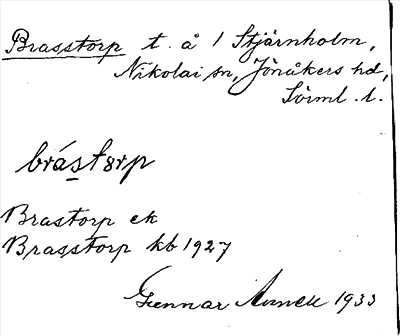 Brasstorp t. å 1 Stjärnholm,
Nikolai sn, Jönåkers hd,
Sörml. l.
brástorp
Brastorp ek
Brasstorp kb 1927
Gunnar 1933